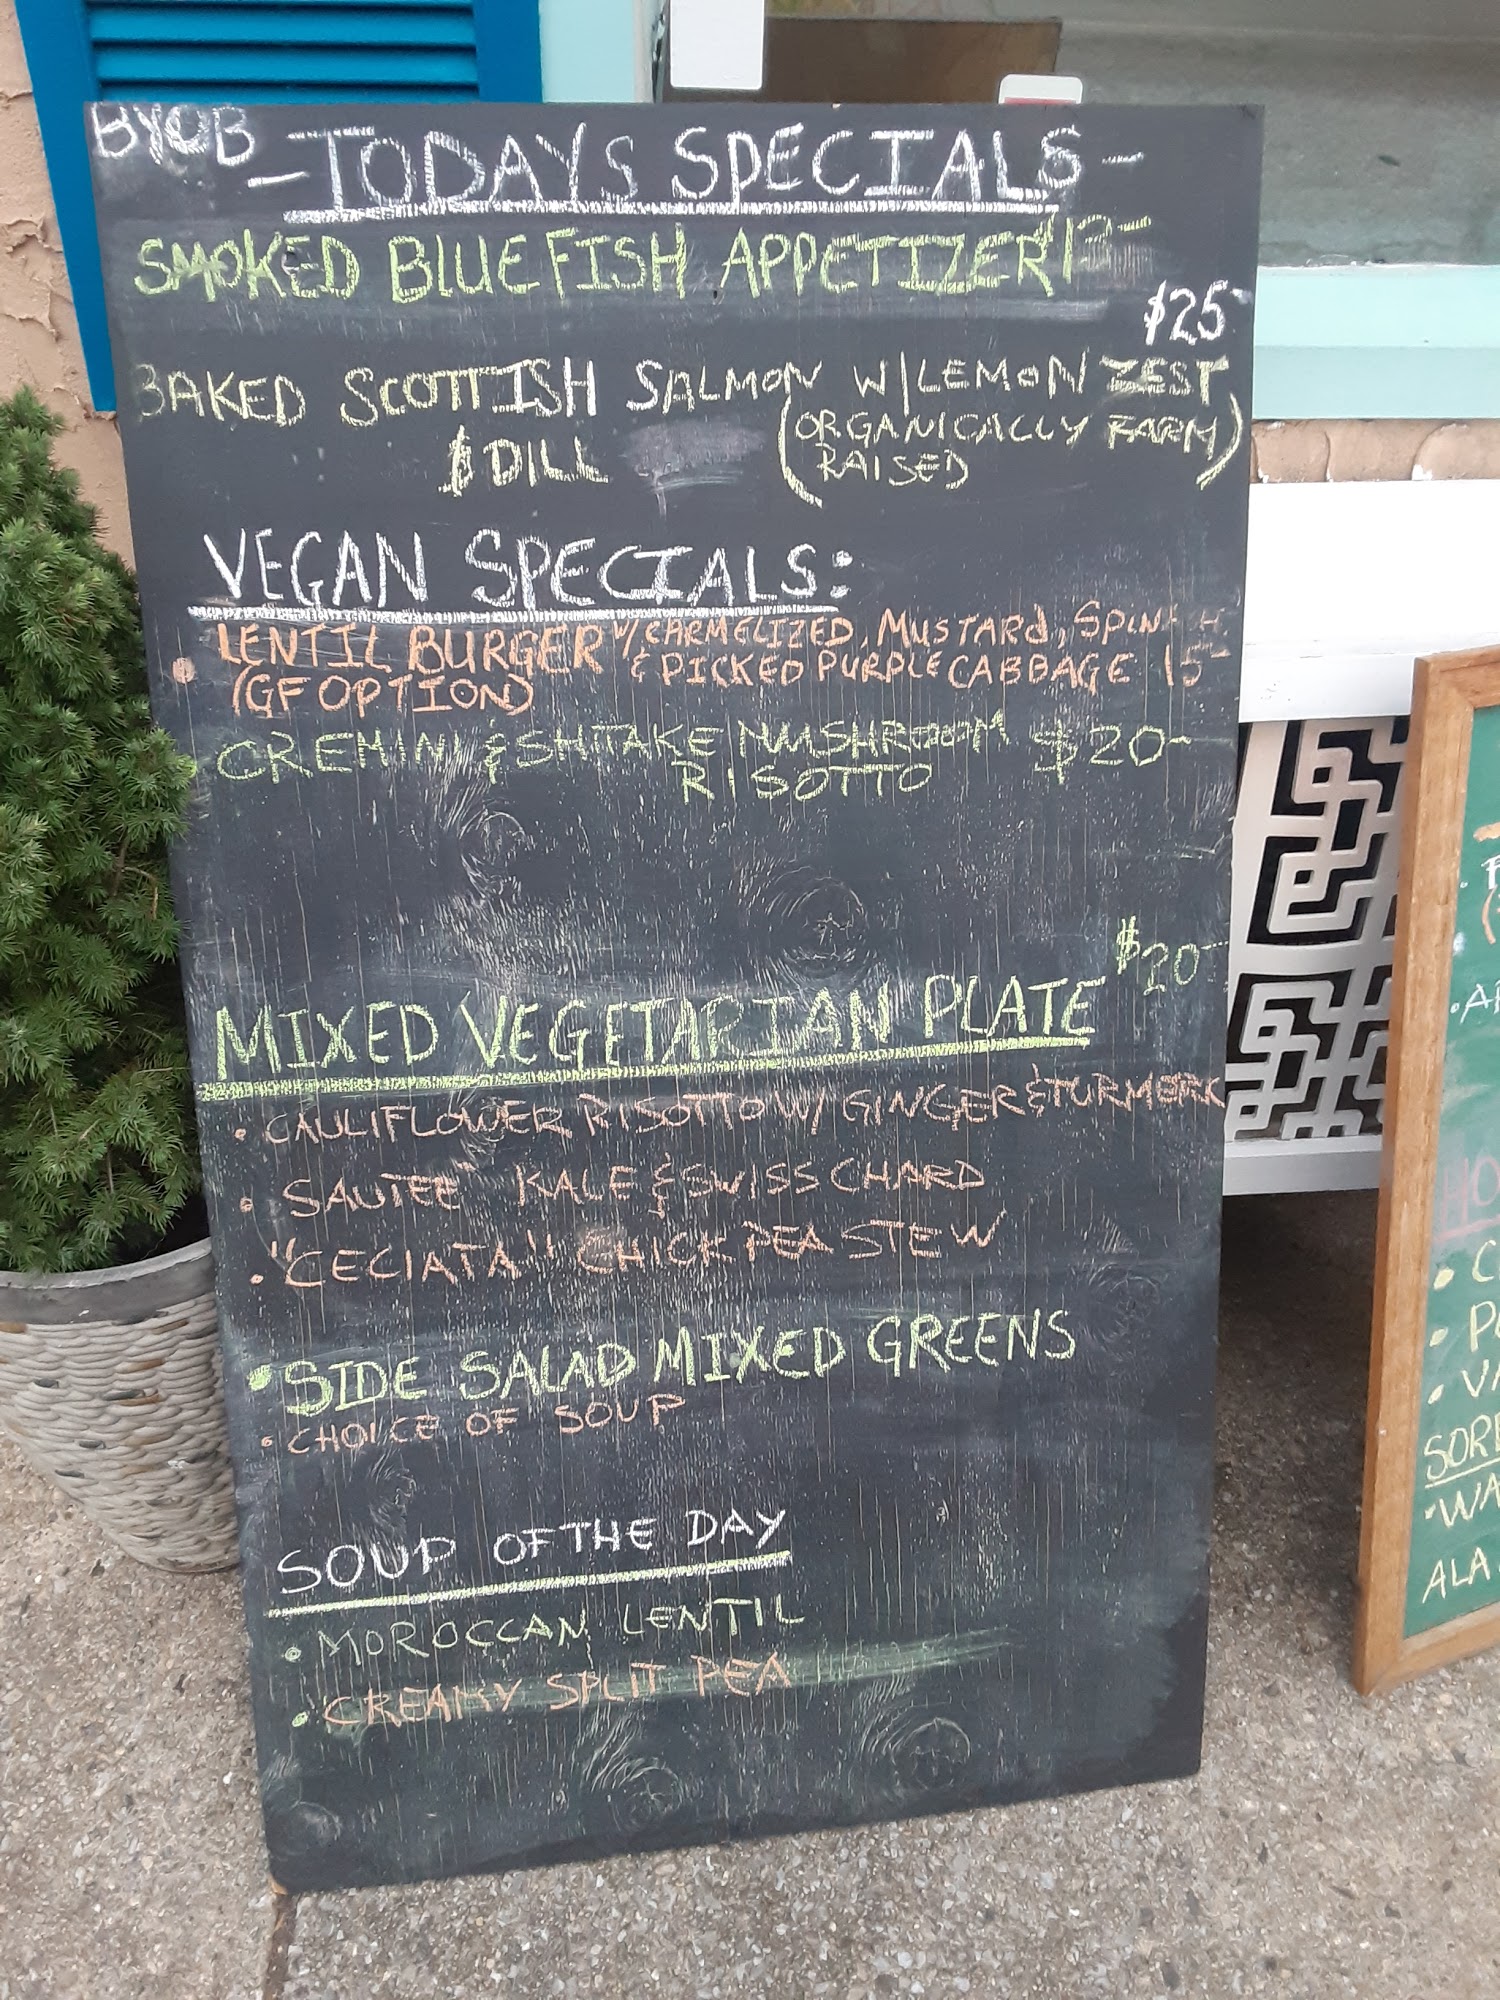 BYOB
-TODAYS SPECIALS-
SMOKED BLUE FISH APPETIZER
$25-
BAKED SCOTTISH SALMON W/LEMON ZEST
& DILL (ORGANICALLY FARM
RAISED)
VEGAN SPECIALS:
• LENTIL BURGER W/ CARMELIZED, MUSTARD,
& PICKED PURPLE CABBAGE 15-
(GF OPTION)
CREMINI & SHITAKE MUSHROOM $20-
RISOTTO
$20-
MIXED VEGETARIAN PLATE
• CAULIFLOWER RISOTTO W/ GINGER & TURMERIC
• SAUTEE KALE & SWISS CHARD
• "CECIATA" CHICK PEA STEW
• SIDE SALAD MIXED GREENS
• CHOICE OF SOUP
SOUP OF THE DAY
• MOROCCAN LENTIL
• CREAMY SPLIT PEA
ALA